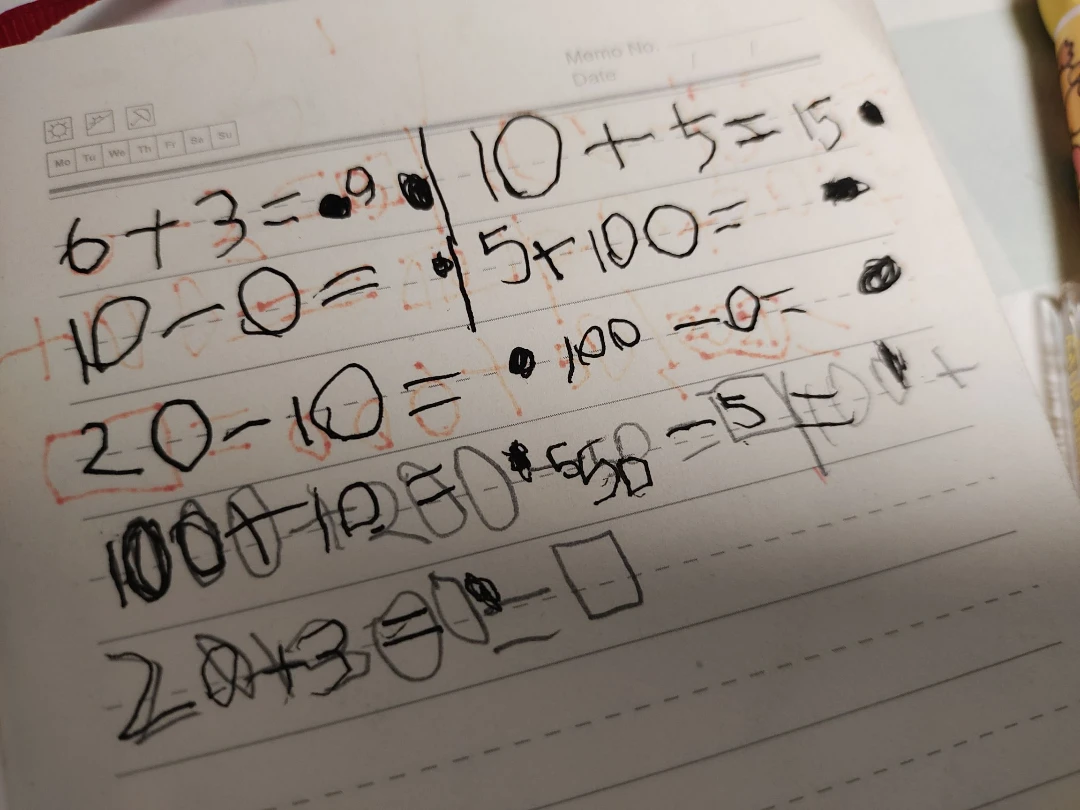 Memo No.
Date / /
Mo Tu We Th Fr Sa Su
6 + 3 = 9
10 + 5 = 15
10 - 0 =
5 + 100 =
20 - 10 =
100 - 0 =
100 + 10 =
= 5
20 + 3 =